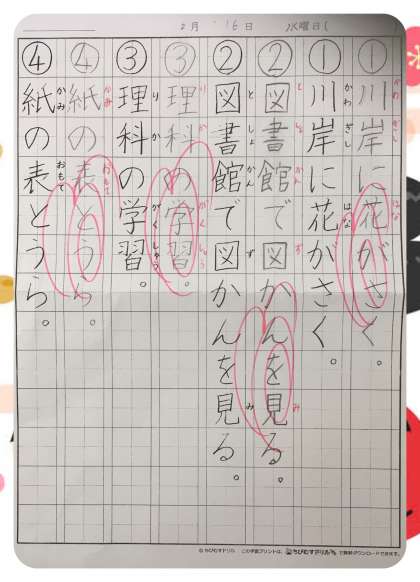 2月 16日 水曜日(
かわ ぎし はな
①川岸に花がさく。
かわ ぎし はな
①川岸に花がさく。
と しょ かん ず み
②図書館で図かんを見る。
と しょ かん ず み
②図書館で図かんを見る。
り か がく しゅう
③理科の学習。
り か がく しゅう
③理科の学習。
かみ おもて
④紙の表とうら。
かみ おもて
④紙の表とうら。
© ちびむすドリル この学習プリントは、ちびむすドリルで無料ダウンロードできます。